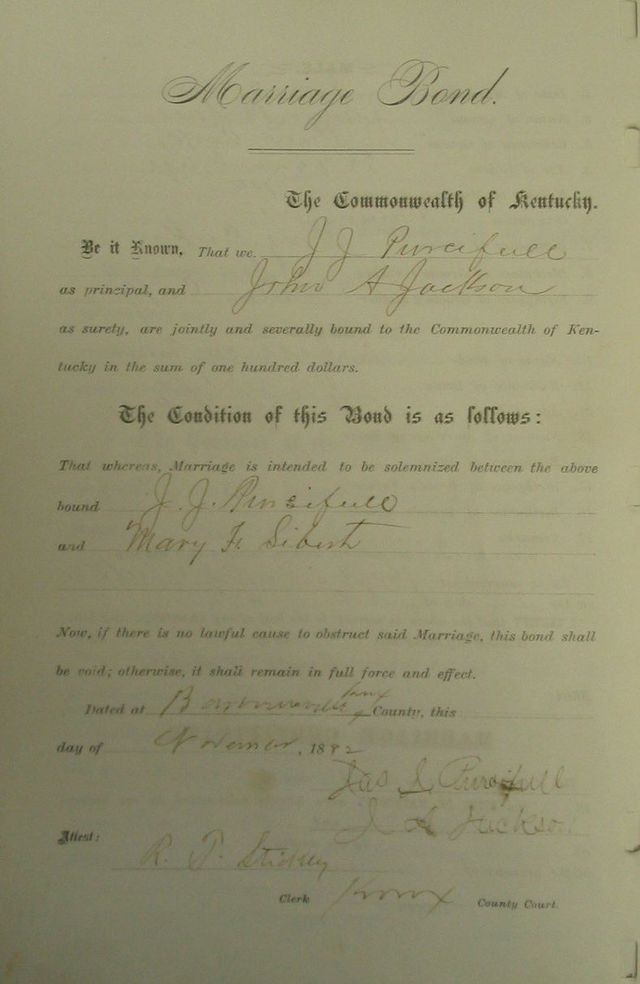 Marriage Bond.
The Commonwealth of Kentucky.
Be it Known, That we J J Purcifull
as principal, and John A Jackson
as surety, are jointly and severally bound to the Commonwealth of Ken-
tucky in the sum of one hundred dollars.
The Condition of this Bond is as follows:
That whereas, Marriage is intended to be solemnized between the above
bound J. J. Purcifull
and Mary F. Sibert
Now, if there is no lawful cause to obstruct said Marriage, this bond shall
be void; otherwise, it shall remain in full force and effect.
Dated at Knox County, this
day of 1892
Jas J. Purcifull
J A Jackson
Attest:
R. P. Stickley
Clerk Knox County Court.